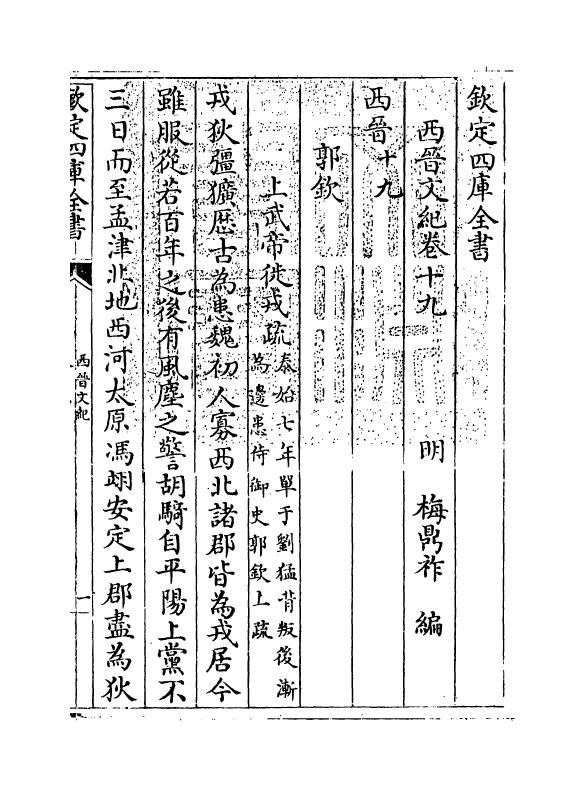 欽定四庫全書
西晉文紀卷十九
明 梅鼎祚 編
西晉十九
郭欽
上武帝徙戎疏 泰始七年單于劉猛背叛後漸
為邊患侍御史郭欽上疏
戎狄彊獷歴古為患魏初人寡西北諸郡皆為戎居今
雖服從若百年之後有風塵之警胡騎自平陽上黨不
三日而至孟津北地西河太原馮翊安定上郡盡為狄
欽定四庫全書
西晉文紀
一